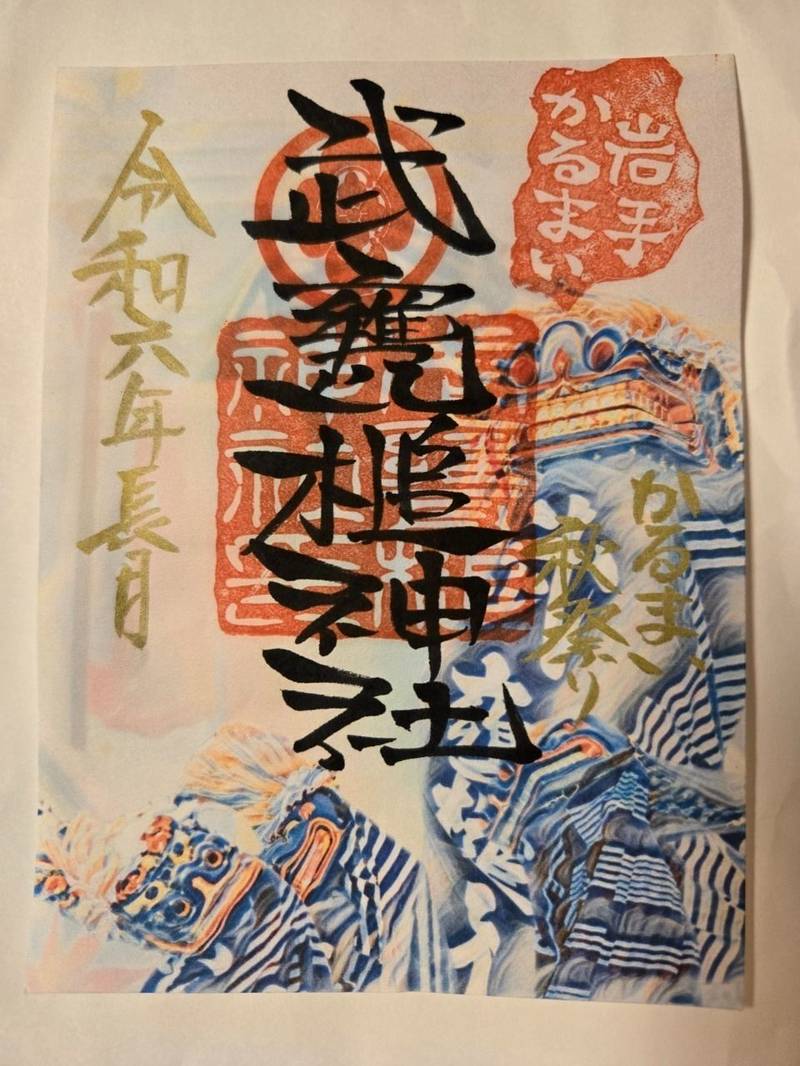 岩手
かるまい
かるまい
秋祭り
武甕槌神社
令和六年長月